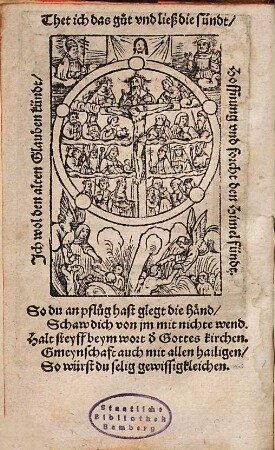 Thet ich das gůt vnd ließ die sündt/
Ich wol den alten Glauben kündt/
Hoffnung vnd forcht den Himel fündt.
So du an pflůg hast glegt die Händ/
Schaw dich von jm mit nichte wend.
Halt steyff beym wort ď Gottes kirchen.
Gmeynschaft auch mit allen hailigen/
So würst du selig gewissigkleichen.
Staatliche
Bibliothek
Bamberg